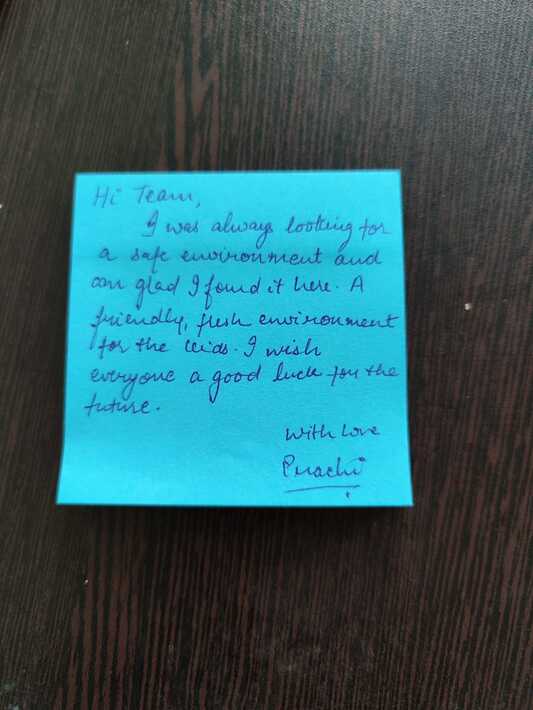 Hi Team,
I was always looking for
a safe environment and
am glad I found it here. A
friendly, fresh environment
for the kids. I wish
everyone a good luck for the
future.
With Love
Prachi